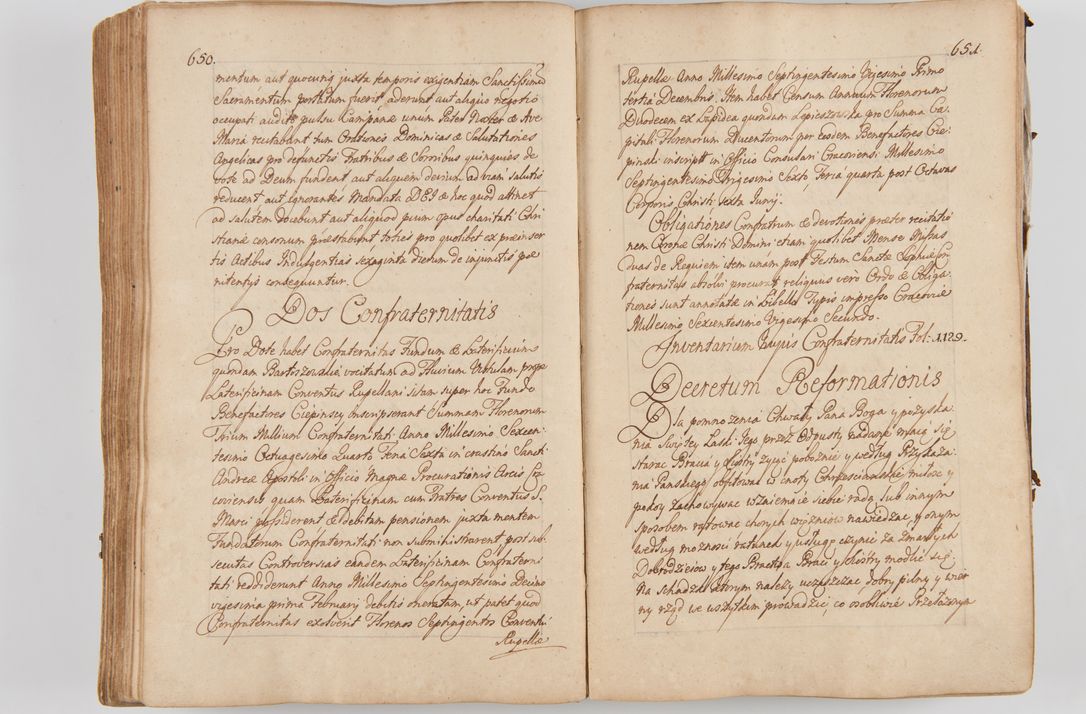 650.
mentum aut quocunq juxta temporis exigentiam Sanctissimũ
Sacramentum portatum fuerit aderunt aut aliquo negotio
occupati audito pulsu Campanæ unum Pater Noster & Ave
Maria recitabunt tum Orationes Dominicas & Salutationes
Angelicas pro defunctis Fratribus & Sororibus quinquies de
vote ad Deum fundent aut aliquem devium ad viam salutis
reducent aut ignorantes Mandata DEI & hoc quod attinet
ad salutem docebunt aut aliquod pium opus charitati Chri
stianæ consonum præstabunt toties pro quolibet ex præinser
tis Actibus Indulgentias sexaginta dierum de injunctis pœ
nitentijs consequuntur.
Dos Confraternitatis
Pro Dote habet Confraternitas Fundum & Laterificium
quondam Bartoszowskie vocitatum ad Fluvium Vistulam prope
Laterificinam Conventus Rupellani sitam super hoc Fundo
Benefactores Ciepinscy inscripserant Summam Florenorum
Trium Millium Confraternitati Anno Millesimo Sexcen
tesimo Octuagesimo Quarto Feria Sexta in crastino Sancti
Andreæ Apostoli in Officio Magnæ Procurationis Arcis Cra
coviensis quam Laterificinam cum Fratres Conventus S.
Marci possiderent & debitam pensionem juxta mentem
Fundatorum Confraternitati non subministrarent post sub
secutas Controversias eandem Laterificinam Confraterni
tati reddiderunt Anno Millesimo Septingentesimo Decimo
vigesima prima Februarij debitis oneratam, ut patet quod
Confraternitas exolverit Florenos Septingentos Conventui
Rupellæ
651.
Rupellæ Anno Millesimo Septingentesimo Vigesimo Primo
tertia Decembris. Item habet Censum Annuum Florenorum
Duodecem ex Lapidea quondam Lepieszowska pro Summa Ca
pitali Florenorum Ducentorum per eosdem Benefactores Cie
pinski inscriptt in Officio Consulari Cracoviensi Millesimo
Septingentesimo Trigesimo Sexto, Feria quarta post Octavas
Corporis Christi sexta Junij.
Obligationes Confratrum & devotiones præter recitatio
nem Coronæ Christi Domini etiam quolibet Mense Missas
duas de Requiem item unam post Festum Sanctæ Sophiæ Con
fraternitas absolvi procurat reliquus verò Ordo & Obliga
tiones sunt annotatæ in Libello Typis impresso Cracoviæ
Millesimo Sexcentesimo Vigesimo Secundo.
Inventarium hujus Confraternitatis Fol: 1129.
Decretum Reformationis
Dla pomnożenia Chwały Pana Boga y pozyska
nia Świętey Łaski Jego przez Odpusty nadane maią się
starac Bracia y Siostry żyćie pobożnie y według Przykaza
nia Pańskiego obfitować w cnoty Chrześcianskie miłosc y
pokoy zachowywac wzaiemnie siebie radą lub innym
sposobem ratowac chorych więzniow nawiedzac y onym
według możnosci ratunek y usługę czynić za zmarłych
Dobrodzieiow y tego Bractwa Braci y Siostry modlic się
Na schadzki ktorym należy uczęszczac dobry pilny y wier
ny rząd we wszytkim prowadzic co osobliwie Przełożonym